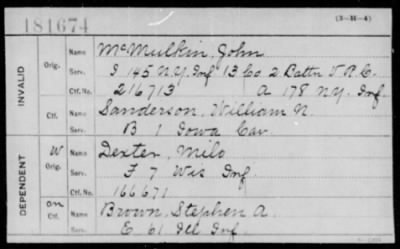 181674
(3-M-4)
INVALID
Orig.
Name McMulkin, John
Serv. I 145 N.Y. Inf 13 Co. 2 Battn V.R.C.
Ctf. No. 216713 A 178 N.Y. Inf.
Ctf.
Name Sanderson, William N.
Serv. B 1 Iowa Cav.
DEPENDENT
W
Orig.
Name Dexter, Milo
Serv. F 7 Wis Inf.
Ctf. No. 166671
Ctf.
Name Brown, Stephen A.
Serv. E 61 Ill Inf.